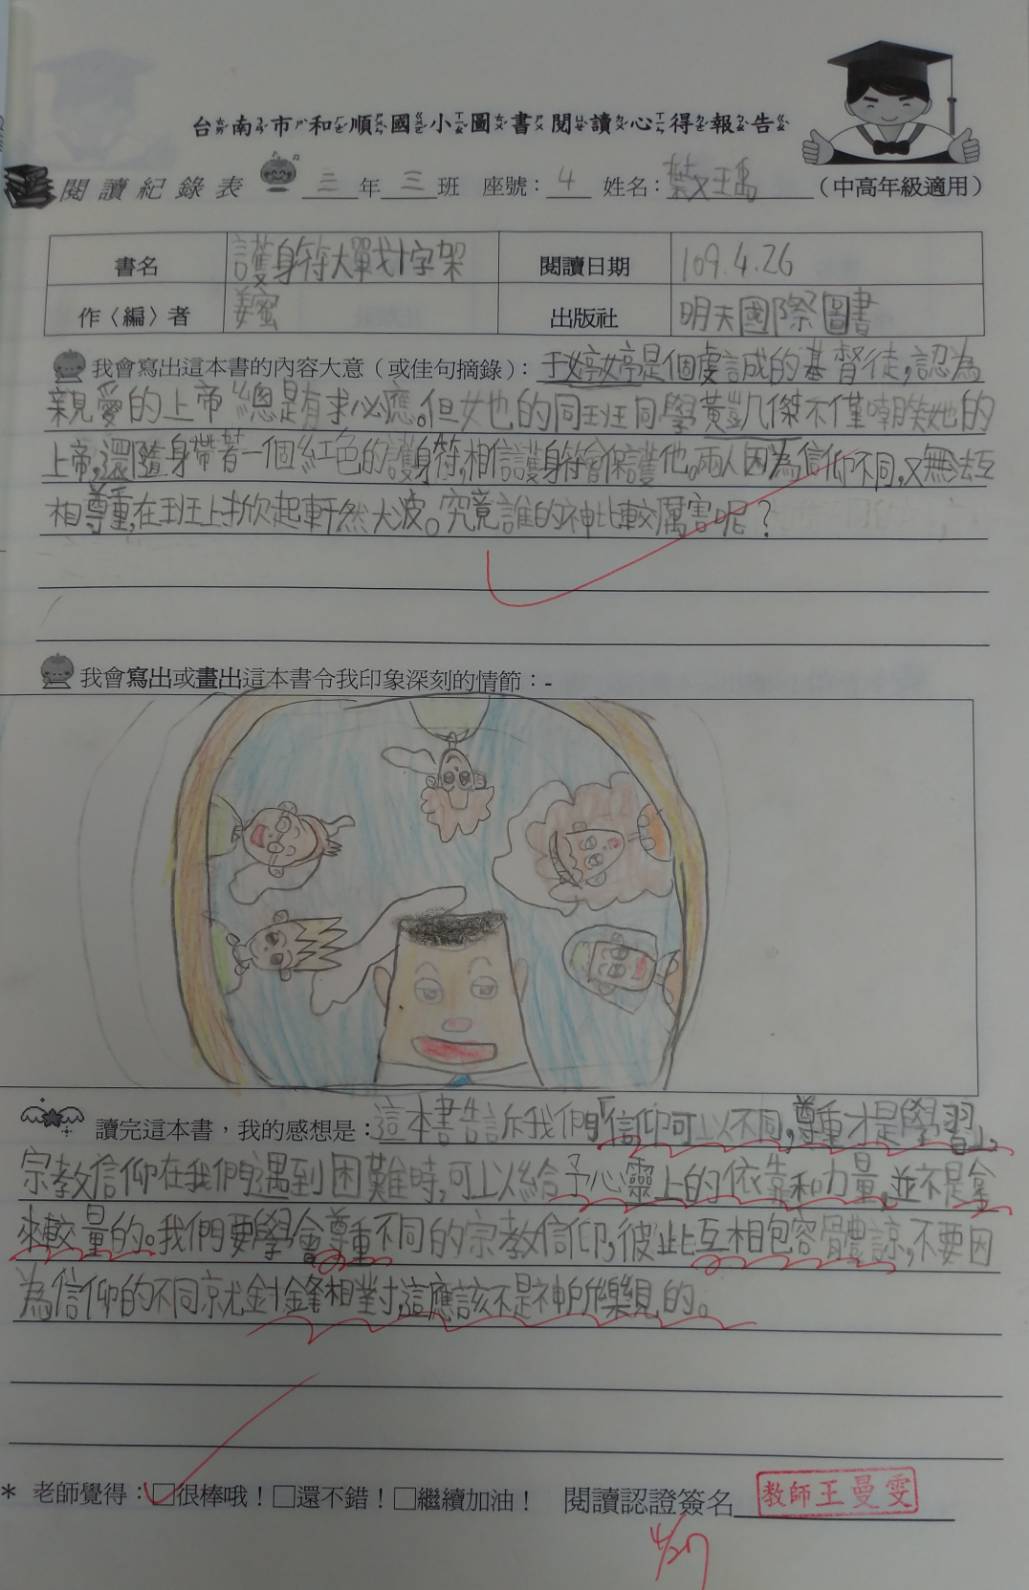 台南市和順國小圖書閱讀心得報告
閱讀紀錄表 三年三班 座號：4 姓名：（中高年級適用）
書名 護身符大戰十字架 閱讀日期 109.4.26
作〈編〉者 姜蜜 出版社 明天國際圖書
我會寫出這本書的內容大意（或佳句摘錄）：于婷婷是個虔誠的基督徒,認為
親愛的上帝總是有求必應。但她的同班同學黃凱傑不僅嘲笑她的
上帝,還隨身帶著一個紅色的護身符,相信護身符會保護他。兩人因為信仰不同,又無法互
相尊重,在班上掀起軒然大波。究竟誰的神比較厲害呢？
我會寫出或畫出這本書令我印象深刻的情節：-
讀完這本書，我的感想是：這本書告訴我們「信仰可以不同,尊重才是學習」,
宗教信仰在我們遇到困難時,可以給予心靈上的依靠和力量,並不是拿
來較量的。我們要學會尊重不同的宗教信仰,彼此互相包容體諒,不要因
為信仰的不同就針鋒相對,這應該不是神所樂見的。
* 老師覺得：□很棒哦！□還不錯！□繼續加油！ 閱讀認證簽名 教師王曼雯
4/27